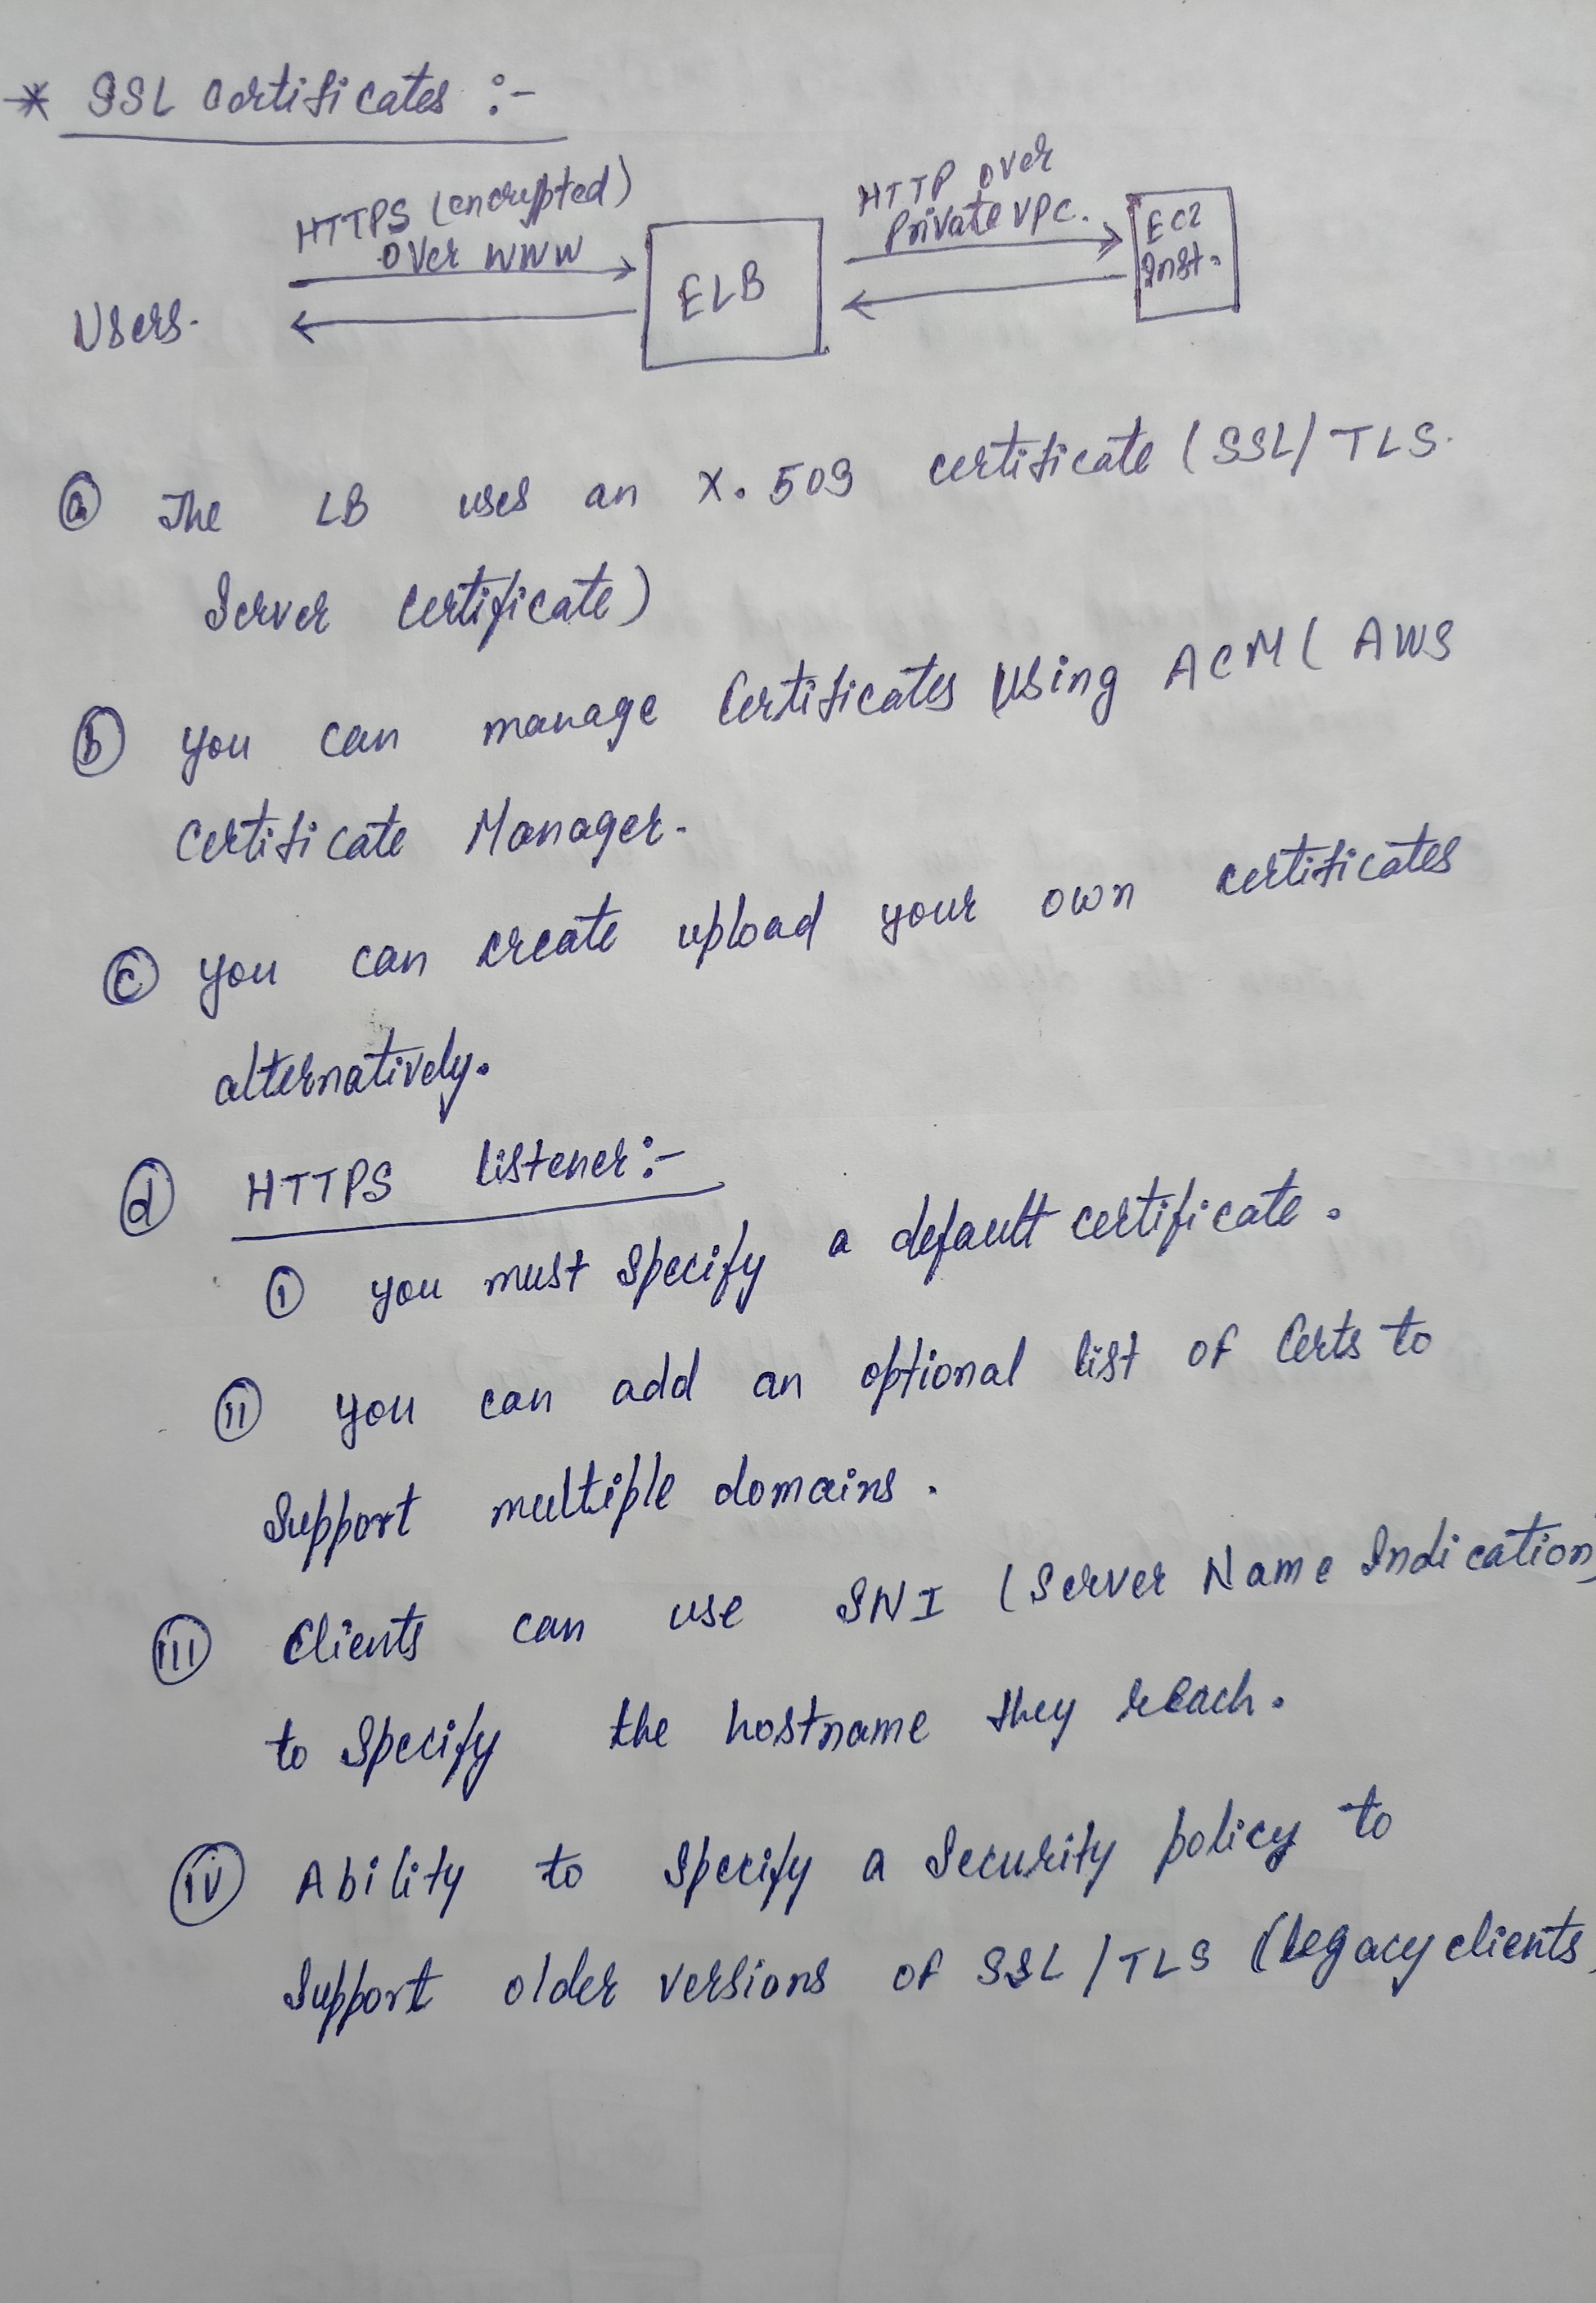 * SSL Certificates :-
HTTPS (encrypted)
over WWW
HTTP over
Private VPC.
Users.
ELB
EC2
Inst.
(a) The LB uses an X.509 certificate (SSL/TLS.
Server Certificate)
(b) you can manage Certificates Using ACM ( AWS
Certificate Manager.
(c) you can create upload your own certificates
alternatively.
(d) HTTPS Listener :-
(i) you must specify a default certificate.
(ii) you can add an optional list of Certs to
Support multiple domains.
(iii) Clients can use SNI (Server Name Indication)
to Specify the hostname they reach.
(iv) Ability to specify a Security policy to
Support older versions of SSL/TLS (legacy clients